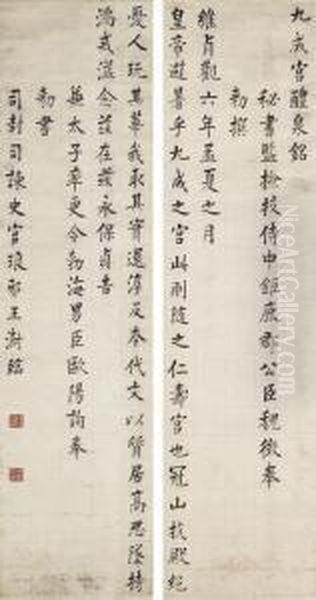 九成宫醴泉銘
秘書監檢校侍中鉅鹿郡公臣魏徵奉
勅撰
維貞觀六年孟夏之月
皇帝避暑乎九成之宫此則隨之仁壽宫也冠山抗殿絕
憂人玩其華我取其實還淳反本代文以質居高思墜持
滿戒溢念茲在茲永保貞吉
兼太子率更令勃海男臣歐陽詢奉
勅書
司封司諫史官琅邪王澍臨